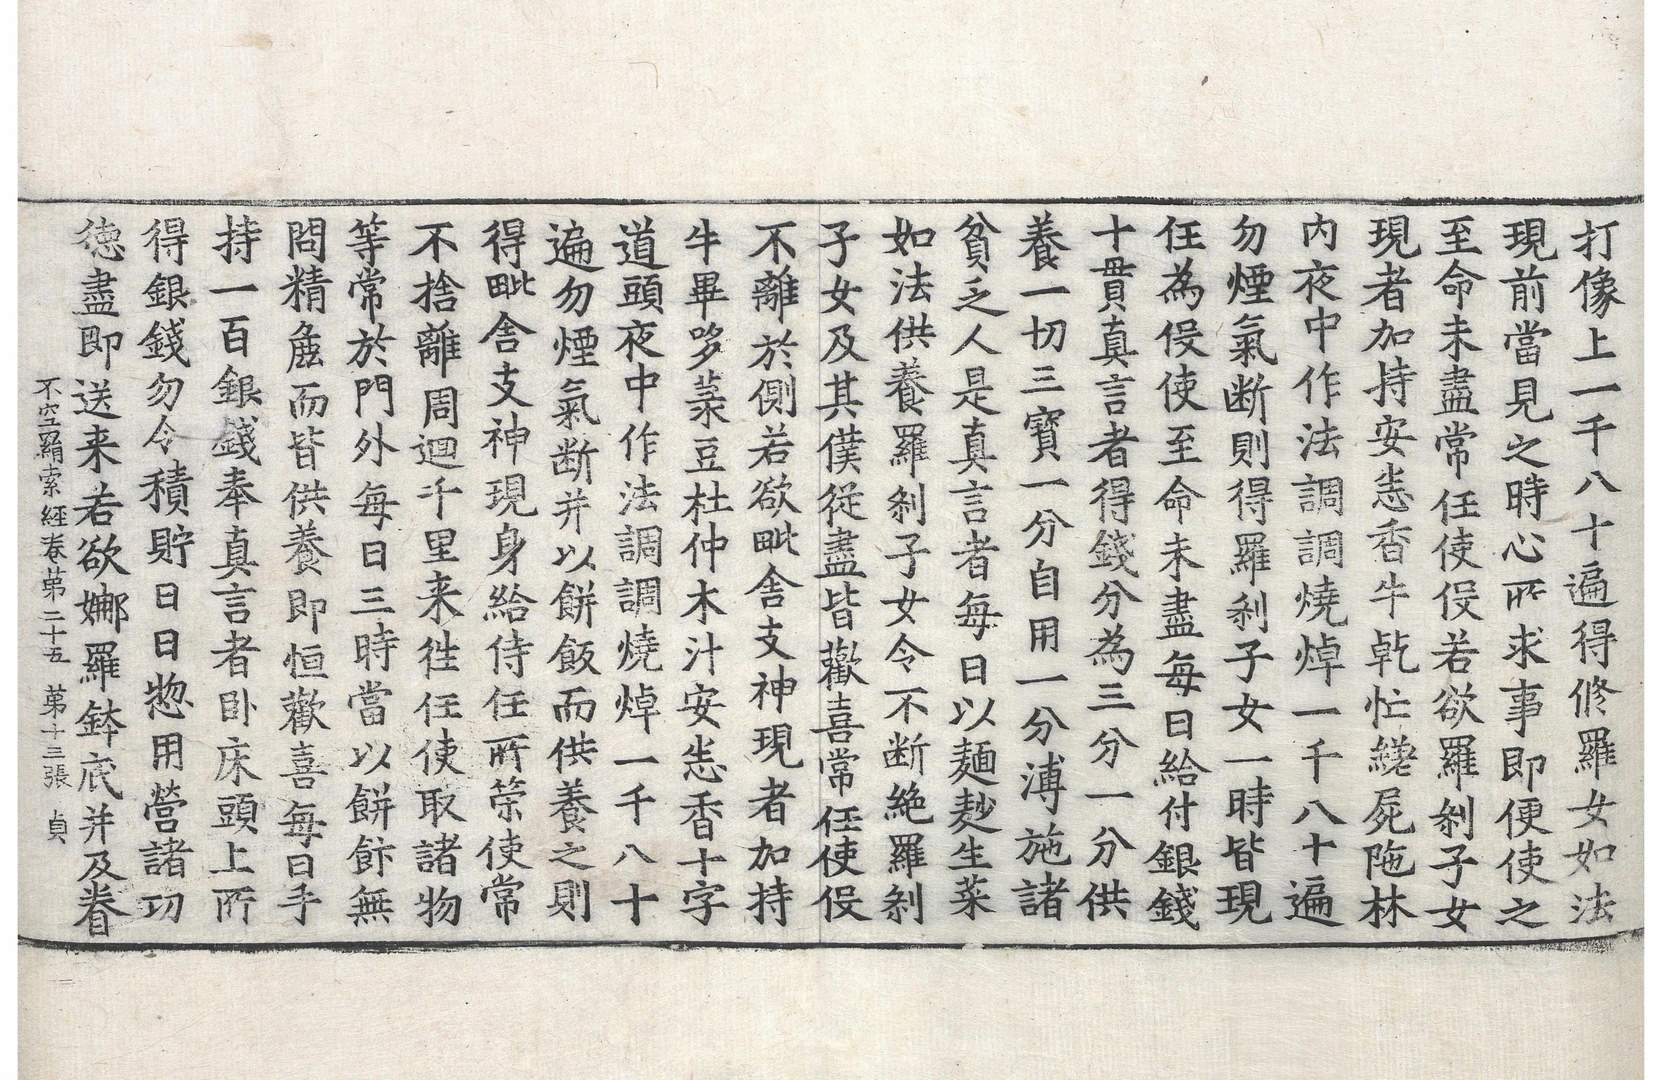 打像上一千八十遍得修羅女如法
現前當見之時心所求事即便使之
至命未盡常任使伇若欲羅剎子女
現者加持安悉香牛乾忙繞屍陁林
内夜中作法調調燒焯一千八十遍
勿煙氣断則得羅剎子女一時皆現
任為伇使至命未盡每日給付銀錢
十貫真言者得錢分為三分一分供
養一切三寶一分自用一分溥施諸
貧乏人是真言者每日以麺麨生菜
如法供養羅剎子女令不断絶羅剎
子女及其僕從盡皆歡喜常任使伇
不離於側若欲毗舍支神現者加持
牛畢哆菉豆杜仲木汁安悉香十字
道頭夜中作法調調燒焯一千八十
遍勿煙氣断并以餅飯而供養之則
得毗舍支神現身給侍任所策使常
不捨離周迴千里来往任使取諸物
等常於門外每日三時當以餅飰無
問精麁而皆供養即恒歡喜每日手
持一百銀錢奉真言者卧床頭上所
得銀錢勿令積貯日日惣用營諸功
徳盡即送来若欲娜羅鉢底并及眷
不空羂索經卷第二十五 第十三張 貞